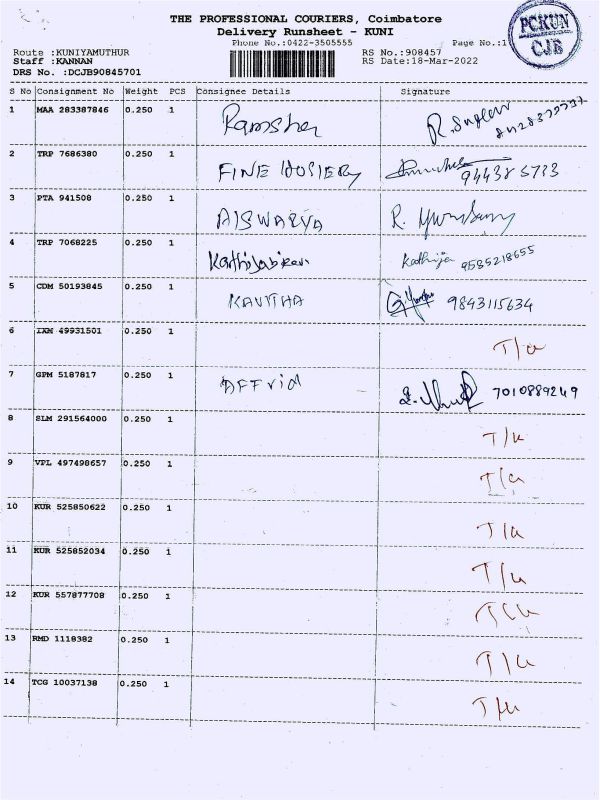 THE PROFESSIONAL COURIERS, Coimbatore
Delivery Runsheet - KUNI
Phone No.:0422-3505555 Page No.:1
PCKUN
CJB
Route :KUNIYAMUTHUR RS No.:908457
Staff :KANNAN RS Date:18-Mar-2022
DRS No. :DCJB90845701
S No Consignment No Weight PCS Consignee Details Signature
1 MAA 283387846 0.250 1
2 TRP 7686380 0.250 1 FINE HOSIERY
3 PTA 941508 0.250 1 AISWARYA R.
4 TRP 7068225 0.250 1 Kathija 9585218655
5 CDM 50193845 0.250 1 KAVITHA 9843115634
6 IXM 49931501 0.250 1 T/a
7 GPM 5187817 0.250 1 AFFrid 7010889249
8 SLM 291564000 0.250 1 T/a
9 VPL 497498657 0.250 1 T/a
10 KUR 525850622 0.250 1 T/a
11 KUR 525852034 0.250 1 T/a
12 KUR 557877708 0.250 1 T/a
13 RMD 1118382 0.250 1 T/a
14 TCG 10037138 0.250 1 T/a